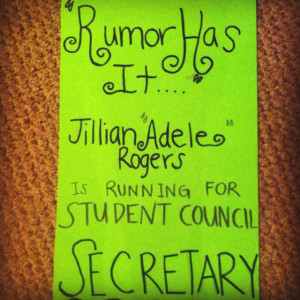 "Rumor Has
It...."
Jillian "Adele"
Rogers
IS RUNNING FOR
STUDENT COUNCIL
SECRETARY